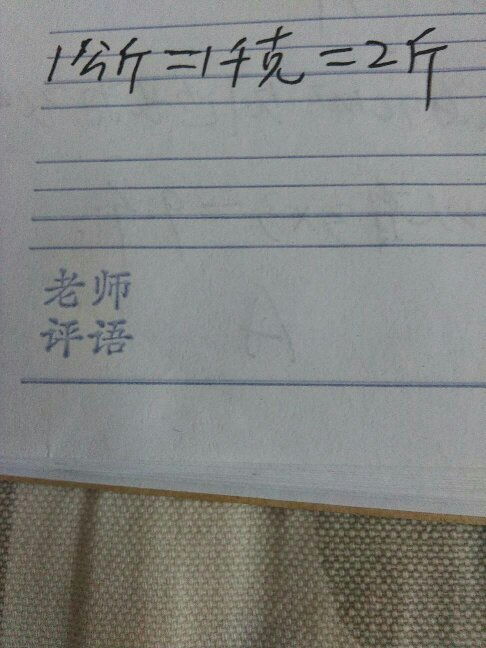 1公斤=1千克=2斤
老师
评语